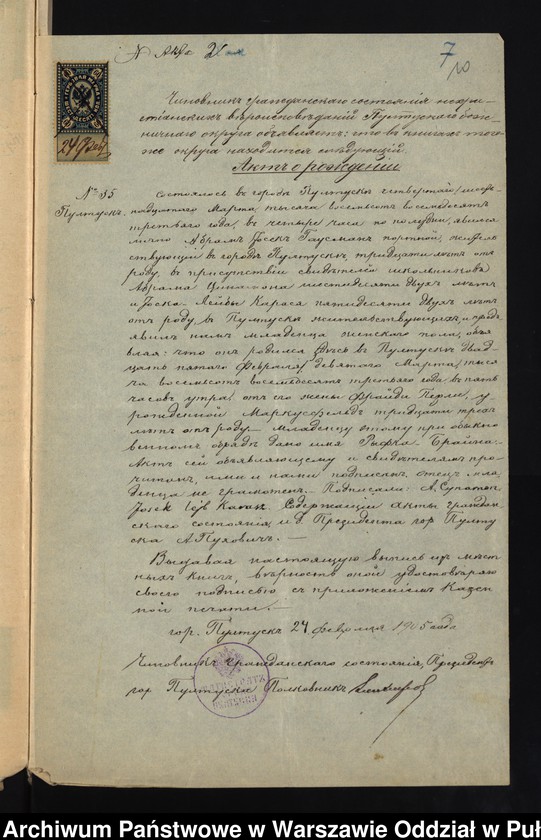 7
10
24 фев
Чиновникъ гражданскаго состоянія нехри-
стіанскихъ вѣроисповѣданій Пултускаго бож-
ничнаго округа объявляетъ: что въ книгахъ того
же округа находится слѣдующій
Актъ о рожденіи
№ 85
Пултускъ.
Состоялось въ городѣ Пултускѣ четвертаго / шест-
надцатаго Марта, тысяча восемьсотъ восемьдесятъ
третьяго года, въ четыре часа по полудни, явился
лично Абрамъ Іосекъ Гаусманъ портной, житель
ствующій въ городѣ Пултускѣ, тридцати лѣтъ отъ
роду, въ присутствіи свидѣтелей школьниковъ
Абрама шестидесяти двухъ лѣтъ
и Іоска-Лейбы Караса пятидесяти двухъ лѣтъ
отъ роду, въ Пултускѣ жительствующихъ и предъ
явилъ намъ младенца женскаго пола, объя
вляя: что онъ родился здѣсь въ Пултускѣ двад-
цать пятаго Февраля / девятаго Марта / тыся
ча восемьсотъ восемьдесятъ третьяго года въ пять
часовъ утра, отъ его жены Фрайди Перли, у-
рожденной Маркусфельдъ тридцати трехъ
лѣтъ отъ роду. Младенцу этому при обыкно
венномъ обрядѣ дано имя Рыфка Брайна.
Актъ сей объявляющему и свидѣтелямъ про-
читанъ, ими и нами подписанъ, отецъ мла
денца не грамотенъ. Подписали: А.
Josek Lejb Karas. Содержащій акты граждан
скаго состоянія, и.д. Президента гор. Пулту
ска А. Пуховичъ.
Выдавая настоящую выпись изъ мѣст
ныхъ книгъ, вѣрность оной удостовѣряю
своею подписью съ приложеніемъ казен
ной печати.
гор. Пултускъ 24 февраля 1905 года
Чиновникъ гражданскаго состоянія, Президентъ
гор. Пултуска Полковникъ
Archiwum Państwowe w Warszawie Oddział w Puł